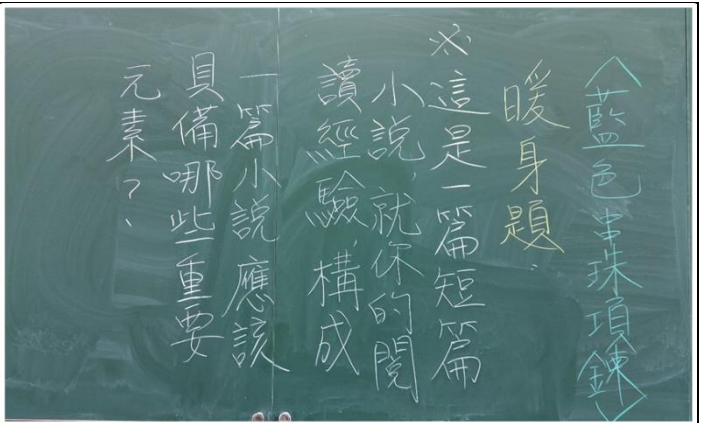 〈藍色串珠項鍊〉
暖身題:
※這是一篇短篇
小說,就你的閱
讀經驗,構成
一篇小說應該
具備哪些重要
元素?、